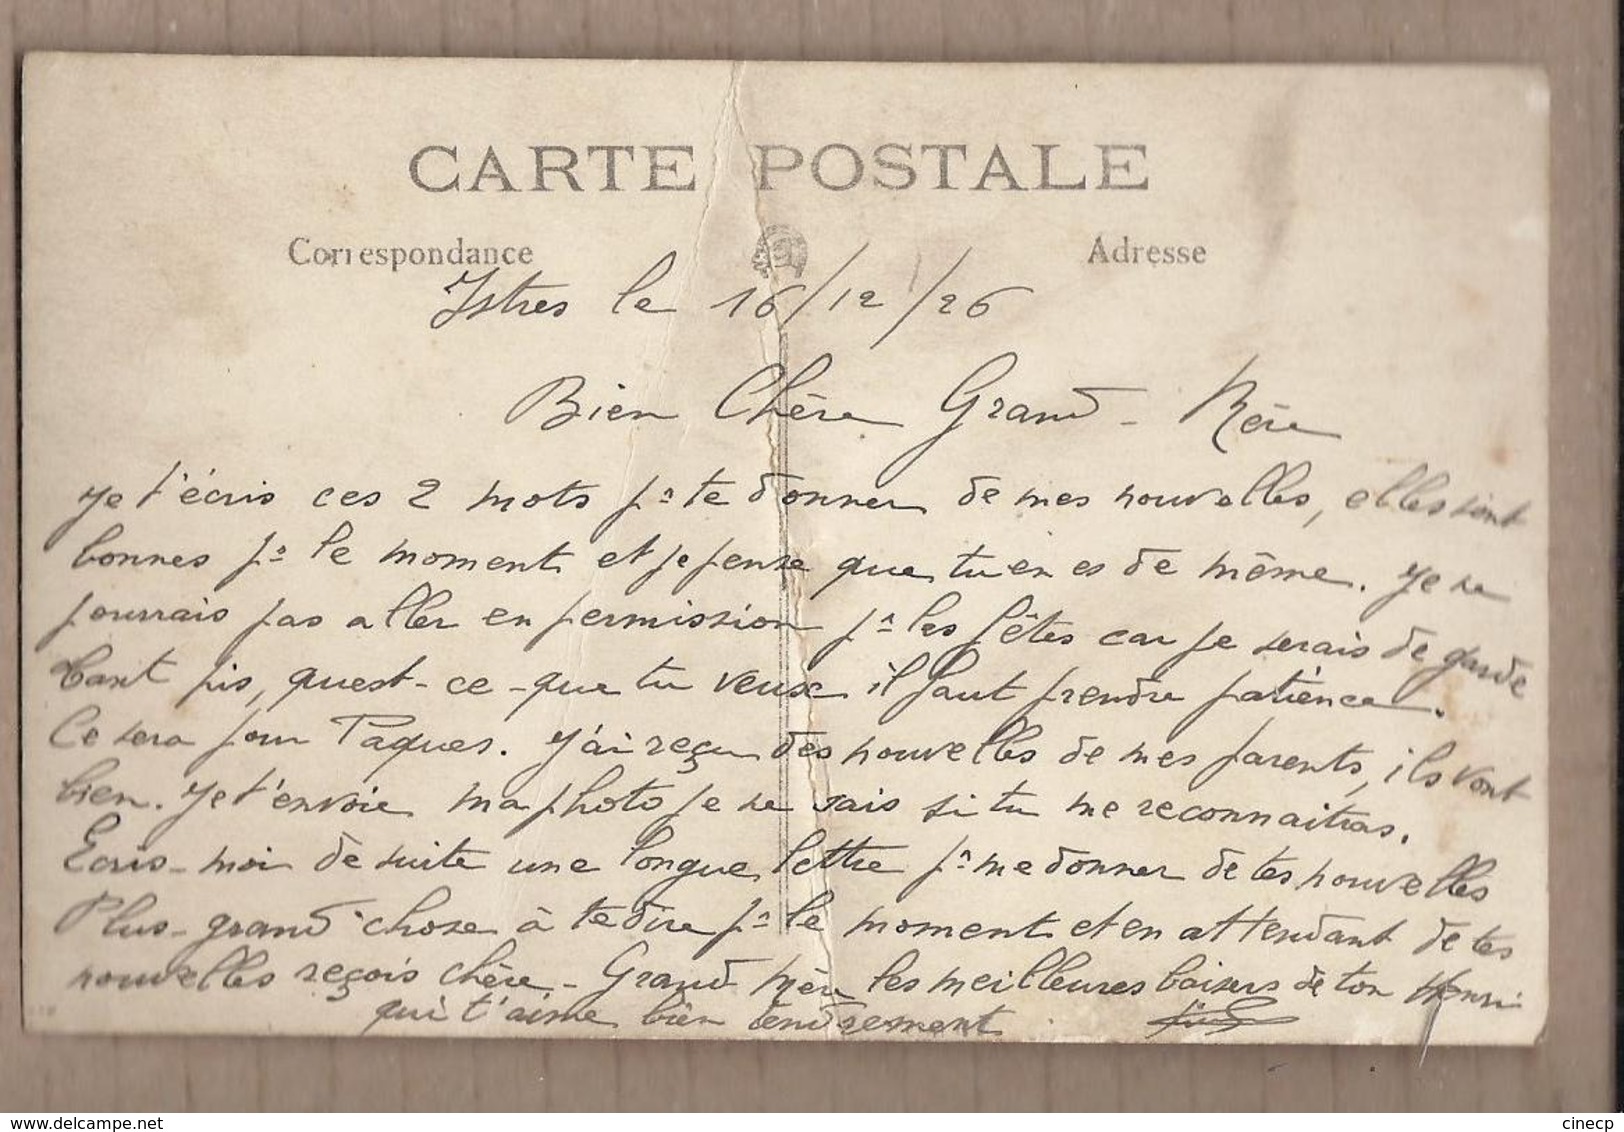 CARTE POSTALE
Correspondance
Adresse
Istres le 16/12/26
Bien Chère Grand-Mère
Je t'écris ces 2 mots pr te donner de mes nouvelles, elles sont
bonnes pr le moment et je pense que tu en es de même. Je ne
pourrais pas aller en permission pr les fêtes car je serais de garde
tant pis, quest-ce-que tu veux il faut prendre patience.
Ce sera pour Paques. J'ai reçu des nouvelles de mes parents, ils vont
bien. Je t'envoie ma photo je ne sais si tu me reconnaitras.
Ecris-moi de suite une longue lettre pr me donner de tes nouvelles
Plus-grand chose à te dire pr le moment et en attendant de tes
nouvelles reçois chère-Grand mère les meilleures baisers de ton Henri
qui t'aime bien tendrement
delcampe.net
cinecp